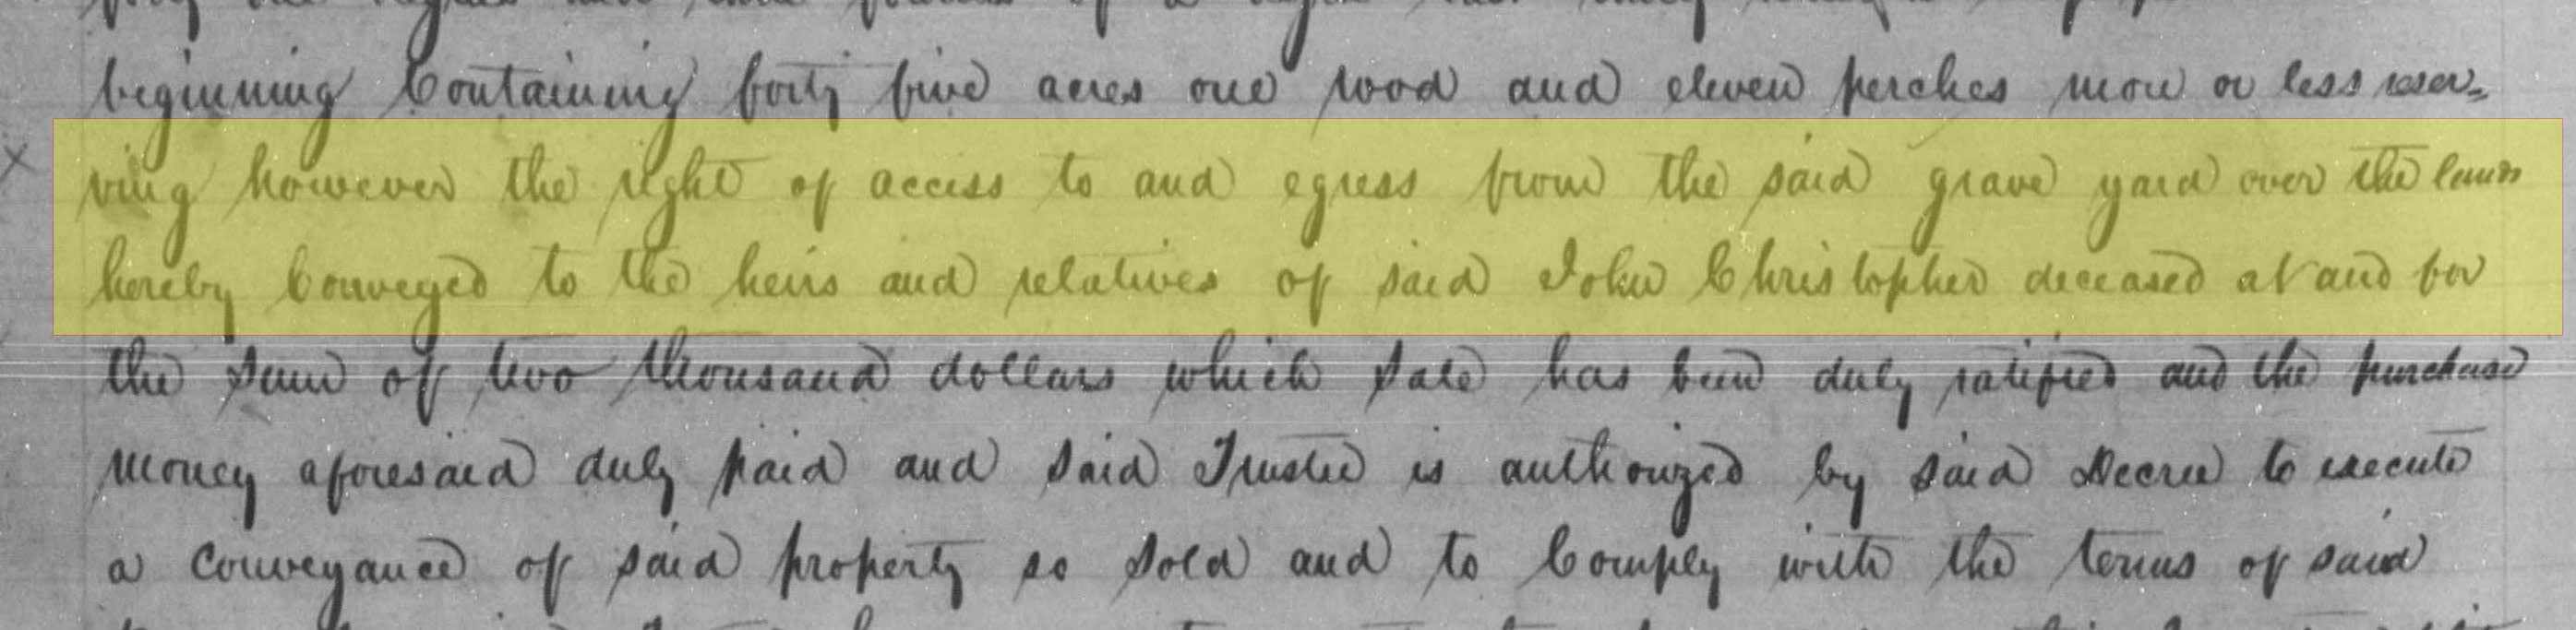 beginning Containing forty five acres one rood and eleven perches more or less reser=
ving however the right of access to and egress from the said grave yard over the lands
hereby Conveyed to the heirs and relatives of said John Christopher deceased at and for
the Sum of two thousand dollars which Sale has been duly ratified and the purchase
money aforesaid duly paid and said Trustee is authorized by said Decree to execute
a Conveyance of said property so Sold and to Comply with the terms of said